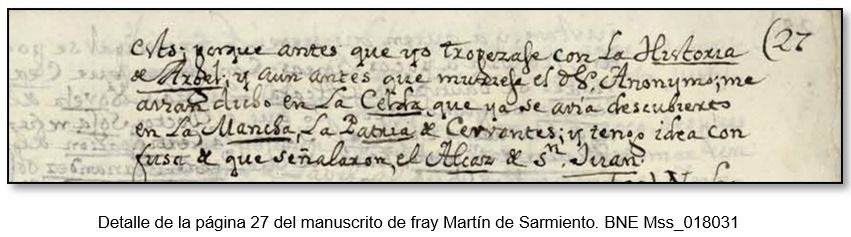 esto; porque antes que yo tropezase con La Historia (27
de Argel; y aun antes que muriese el dho. Anonymo; me
avian dicho en La Celda, que ya se avia descubierto
en La Mancha, La Patria de Cervantes; y tengo idea con
fusa de que señalaron, el Alcaz de Sn. Juan
Detalle de la página 27 del manuscrito de fray Martín de Sarmiento. BNE Mss_018031